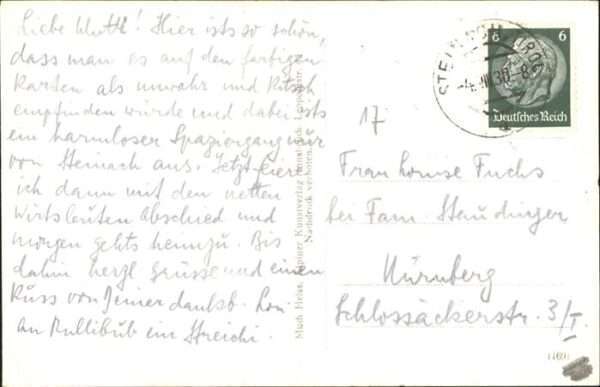 Liebe Mutti! Hier ists so schön,
dass man es auf den farbigen
Karten als unwahr und Kitsch
empfinden würde und dabei ists
ein harmloser Spaziergang nur
von Steinach aus. Jetzt feiere
ich dann mit den netten
Wirtsleuten Abschied und
morgen gehts heimzu. Bis
dahin herzl Grüsse und einen
Kuss von Deiner dankb.
An Bullibub ein Streichi.
Much Heiss, Alpiner Kunstverlag Innsbruck
Nachdruck verboten
6 6
Deutsches Reich
STEINACH
17
Frau Louise Fuchs
bei Fam. Staudinger
Nürnberg
Schlossäckerstr. 3/I.